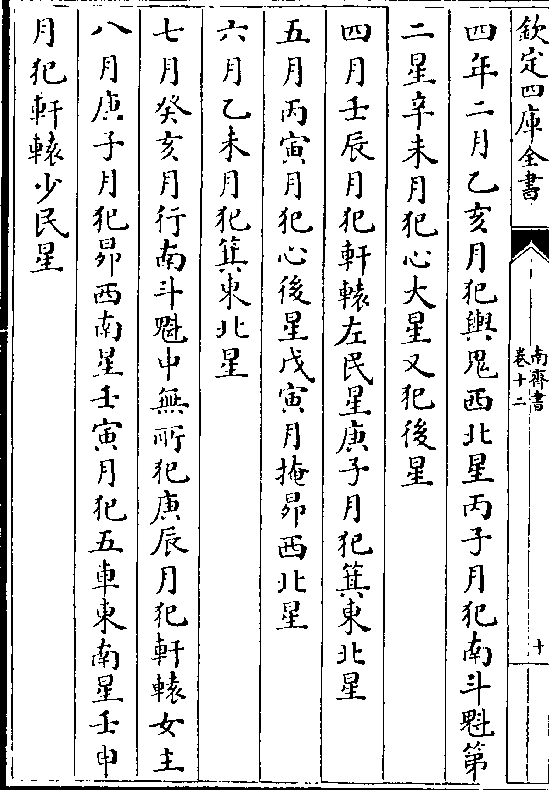 欽定四庫全書
南齊書
卷十二
十
四年二月乙亥月犯輿鬼西北星丙子月犯南斗魁第
二星辛未月犯心大星又犯後星
四月壬辰月犯軒轅左民星庚子月犯箕東北星
五月丙寅月犯心後星戊寅月掩昴西北星
六月乙未月犯箕東北星
七月癸亥月行南斗魁中無所犯庚辰月犯軒轅女主
八月庚子月犯昴西南星壬寅月犯五車東南星壬申
月犯軒轅少民星